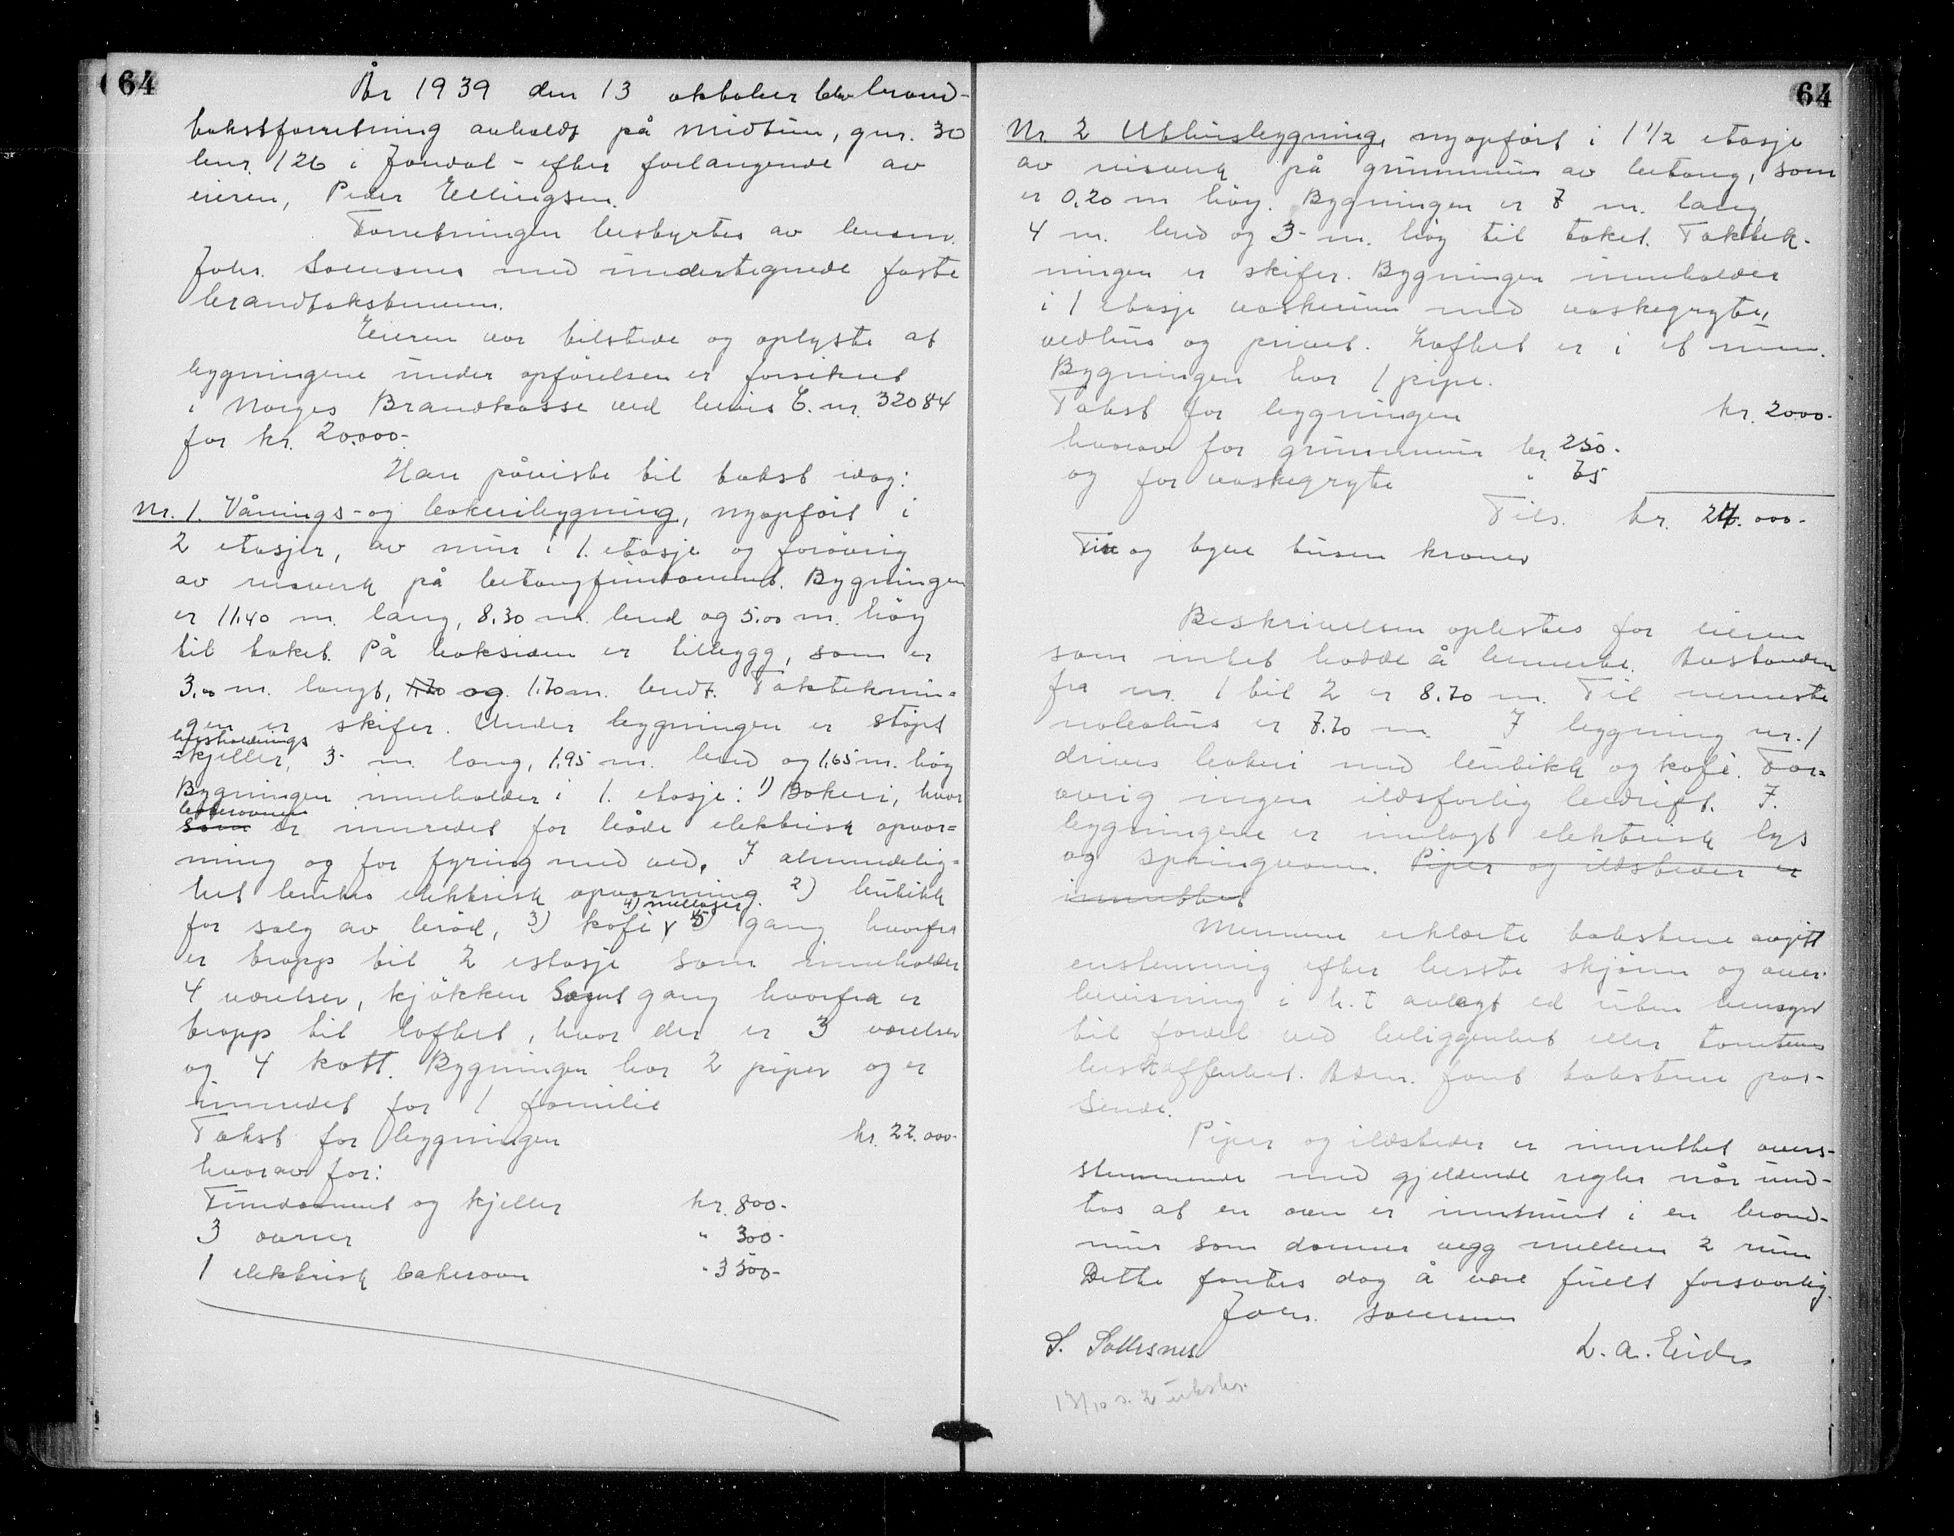 64
År 1939 den 13 oktober blev brand-
takstforretning avholdt på Midtun, gnr. 30
bnr. 126 i Jondal - efter forlangende av
eieren, Peder Ellingsen.
Forretningen bestyrtes av lensm.
Johs. Solesnes med undertegnede faste
brandtakstmenn.
Eieren var tilstede og oplyste at
bygningene under opförelsen er forsikret
i Norges Brandkasse ved bevis E. nr. 32084
for kr. 20.000-
Han påviste til takst idag:
Nr. 1. Vånings- og bakeribygning, nyopfört i
2 etasjer, av mur i 1. etasje og forövrig
av reisverk på betongfundament. Bygningen
er 11.40 m. lang, 8.30 m. bred og 5.00 m. höy
til taket. På baksiden er tilbygg, som er
3.00 m. langt, 1,70 og 1.70 m. bredt. Takteknin-
gen er skifer. Under bygningen er stöpt
husholdnings
-kjeller, 3- m. lang, 1.95 m. bred og 1,65 m. höy
Bygningen inneholder i 1. etasje: 1) Bakeri, hvor
bakerovnen
som er innredet for både elektrisk opvar=
ming og for fyring med ved. I almindelig-
het brukes elektrisk opvarming. 2) butikk
4) mellager
for salg av bröd, 3) kafé, 5) gang hvorfra
er trapp til 2 etasje som inneholder
4 værelser, kjökken samt gang hvorfra er
trapp til loftet, hvor der er 3 værelser
og 4 kott. Bygningen har 2 piper og er
innredet for 1 familie
Takst for bygningen kr. 22.000-
hvorav for:
Fundament og kjeller kr. 800-
3 ovner " 300-
1 elektrisk bakerovn " 3500-
64
Nr. 2 Uthusbygning, nyopfört i 1 1/2 etasje
av reisverk på grunnmur av betong, som
er 0,20 m höy. Bygningen er 7 m. lang,
4 m. bred og 3- m. höy til taket. Taktek-
ningen er skifer. Bygningen inneholder
i 1 etasje vaskerum med vaskegryte,
vedhus og privet. Loftet er i et rum.
Bygningen har 1 pipe.
Takst for bygningen kr. 2000-
hvorav for grunnmur kr. 250-
og for vaskegryte " 75
Tils. kr. 24.000-
Fire og tyve tusen kroner
Beskrivelsen oplestes for eieren
som intet hadde å bemerke. Avstanden
fra nr. 1 til 2 er 8.70 m. Til nærmeste
nabohus er 7.70 m. I bygning nr. 1
drives bakeri med butikk og kafé. For-
övrig ingen ildsfarlig bedrift. I
bygningene er innlagt elektrisk lys
og springvann. Piper og ildsteder er
innrettet
Mennene erklærte takstene avgitt
enstemmig efter beste skjönn og over-
bevisning i h.t. avlagt ed uten hensyn
til fordel ved beliggenhet eller tomtens
beskaffenhet. Bem. fant takstene pas-
sende.
Piper og ildsteder er innrettet overs-
stemmende med gjeldende regler når und-
tas at en ovn er innmuret i en brand-
mur som danner vegg mellem 2 rum
Dette fantes dog å være fullt forsvarlig.
Johs. Solesnes
S. Sollesnes L. A. Eide
13/10 s. 2 utskr.